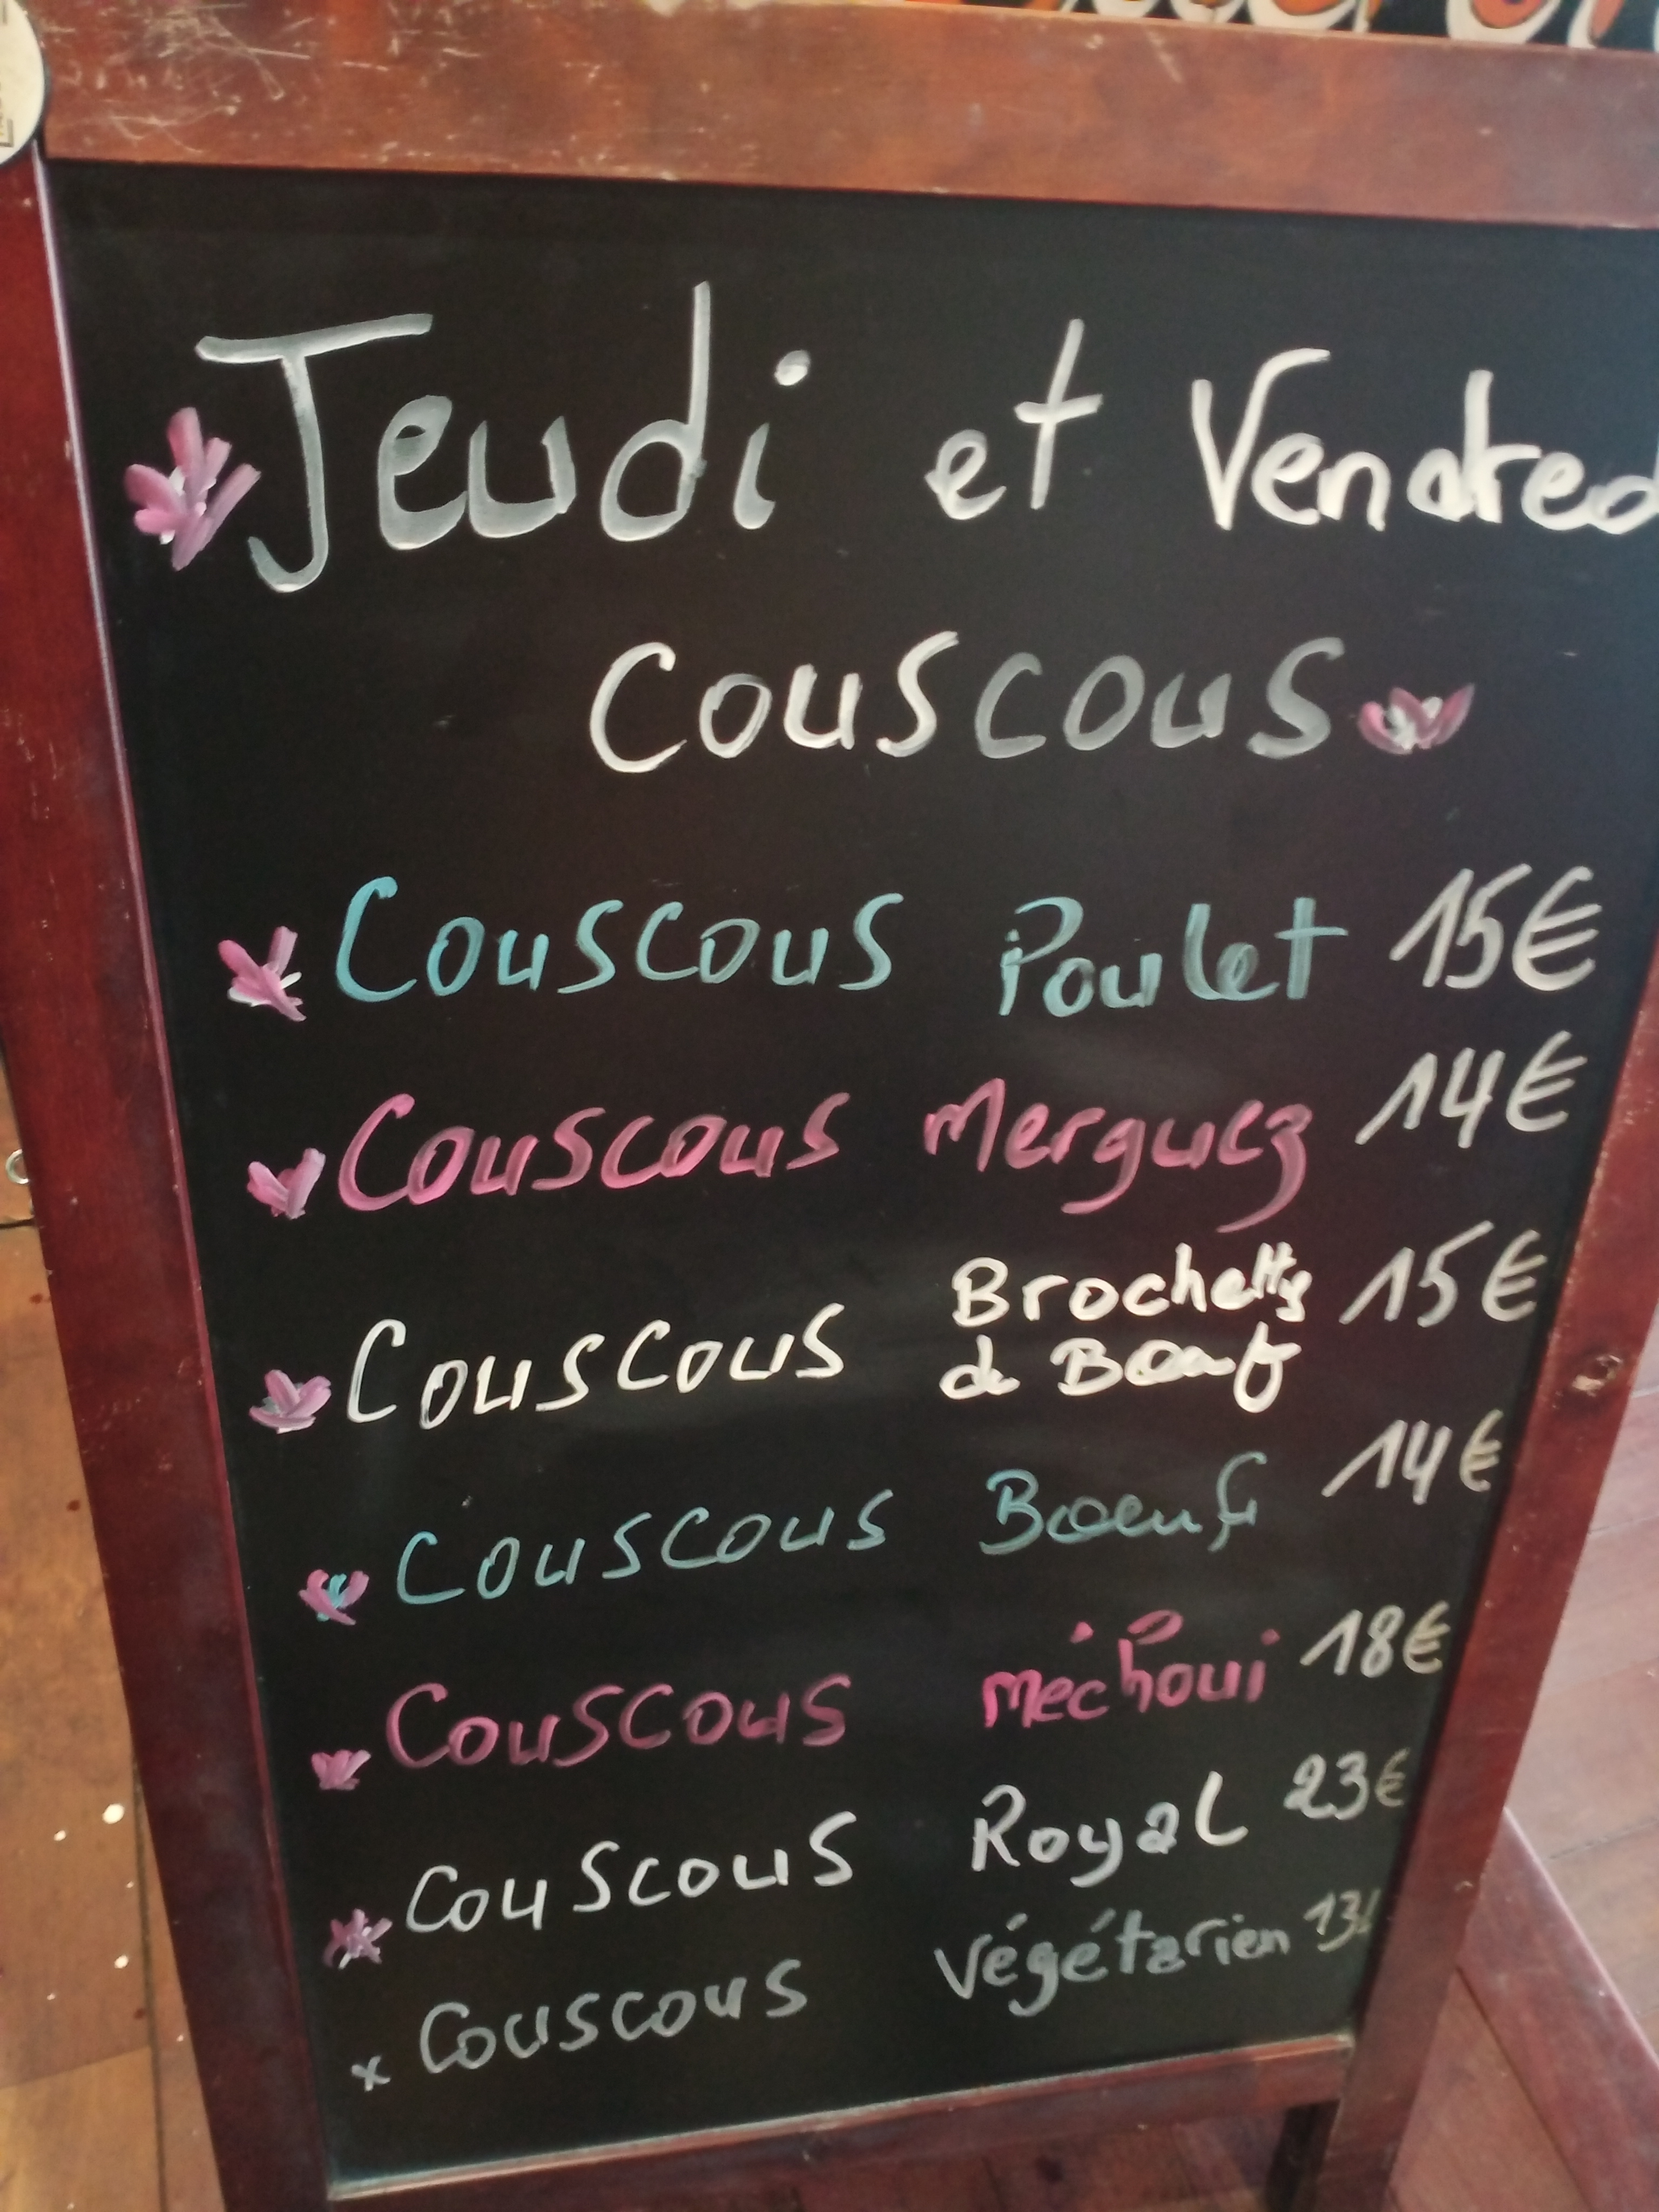 Jeudi et Vendred
Couscous
Couscous Poulet 15€
Couscous Merguez 14€
Couscous Brochettes de Bœuf 15€
Couscous Bœuf 14€
Couscous méchoui 18€
Couscous Royal 23€
x Couscous végétarien 13€